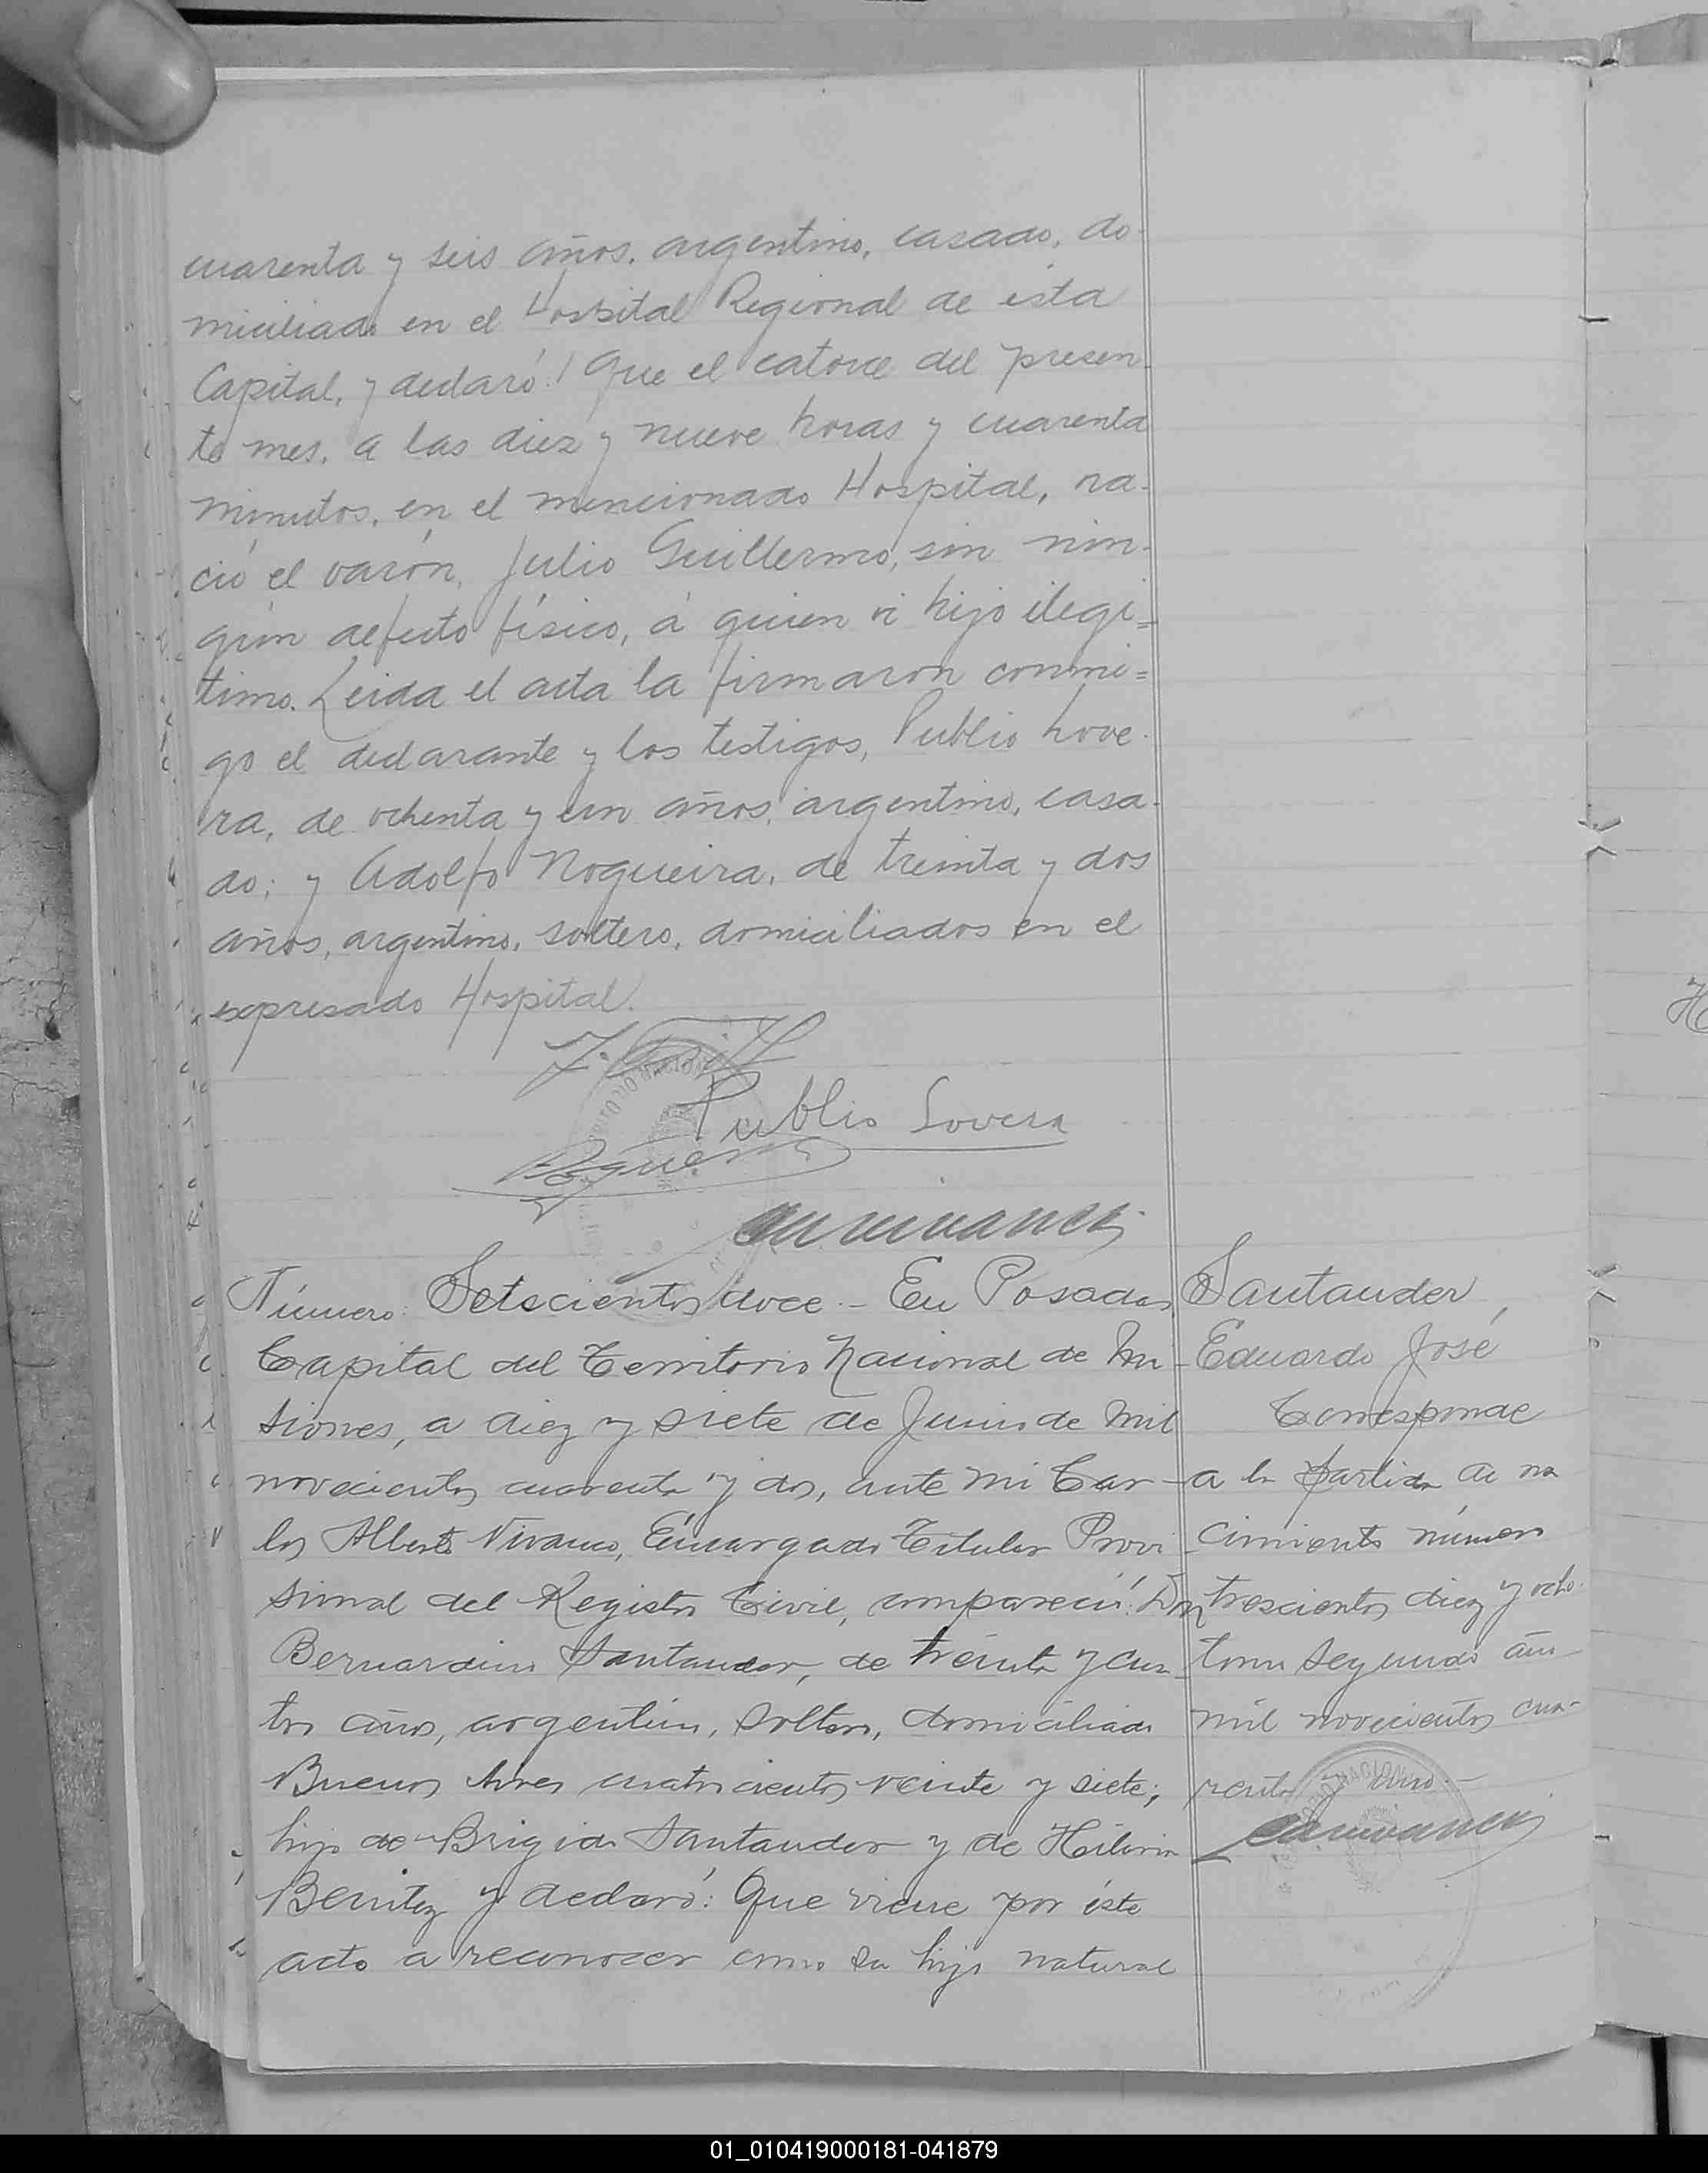 cuarenta y seis años, argentino, casado, do-
miciliado en el Hospital Regional de ésta
Capital, y declaró: Que el catorce del presen-
te mes, a las diez y nueve horas y cuarenta
minutos, en el mencionado Hospital, na-
ció el varón, Julio Guillermo, sin nin-
gún defecto físico, á quien vi hijo ilegi=
timo. Leida el acta la firmaron conmi=
go el declarante y los testigos, Publio Love-
ra, de ochenta y un años, argentino, casa-
do; y Adolfo Nogueira, de treinta y dos
años, argentino, soltero, domiciliados en el
expresado Hospital.
Publio Lovera
Número: Setecientos doce.- En Posadas
Capital del Territorio Nacional de Mi-
siones, a diez y siete de Junio de mil
novecientos cuarenta y dos, ante mi Car-
los Alberto Vivanco, Encargado Titular Provi-
sional del Registro Civil, compareció: Don
Bernardino Santander, de treinta y cua-
tro años, argentino, soltero, domiciliado
Buenos Aires cuatrocientos veinte y siete;
hijo de Brigida Santander y de Hilario
Benitez y declaró: Que viene por éste
acto a reconocer como su hijo natural
Santander,
Eduardo José
Corresponde
a la partida de na
cimiento número
trescientos diez y ocho
tomo segundo año
mil novecientos cua-
renta y uno.-
01_010419000181-041879